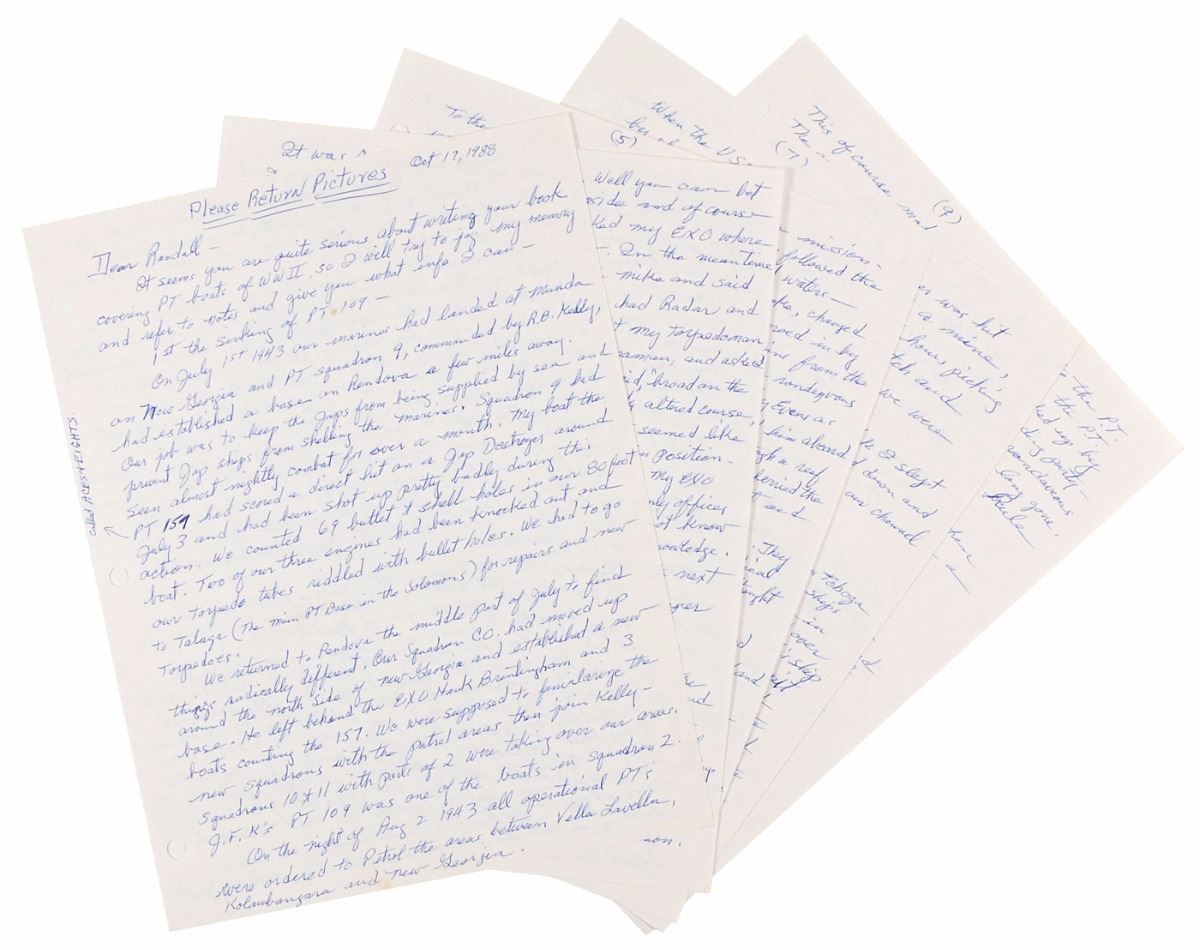 Oct 17, 1988
Please Return Pictures
Dear Randall –
It seems you are quite serious about writing your book
covering PT boats of WWII, so I will try to jog my memory
and refer to notes and give you what info I can –
1st the sinking of PT 109 –
On July 1st 1943 our marines had landed at Munda
on New Georgia and PT squadron 9, commanded by R.B. Kelly,
had established a base on Rendova a few miles away.
Our job was to keep the Japs from being supplied by sea and
prevent Jap ships from shelling the marines. Squadron 9 had
seen almost nightly combat for over a month. My boat the
PT 157 had scored a direct hit on a Jap Destroyer around
July 3 and had been shot up pretty badly during this
action. We counted 69 bullet & shell holes in our 80 foot
boat. Two of our three engines had been knocked out and
our torpedo tubes riddled with bullet holes. We had to go
to Talaga (The main PT Base in the Solomons) for repairs and new
Torpedoes.
We returned to Rendova the middle part of July to find
things radically different. Our Squadron C.O. had moved up
around the north side of New Georgia and established a new
base. He left behind the EXO Hank Brentingham and 3
boats counting the 157. We were supposed to familiarize the
new squadrons with the patrol areas then join Kelly –
Squadrons 10 & 11 with parts of 2 were taking over our areas.
J.F.K's PT 109 was one of the boats in squadron 2.
On the night of Aug 2 1943 all operational PT's
were ordered to Patrol the areas between Vella Lavella,
Kolambangara and New Georgia.
called ACES & EIGHTS
It was
To the
(5)
Well you can bet
side and of course
ked my EXO where
In the meantime
mike and said
had Radar and
my Torpedoman
seaman, and asked
id, "broad on the
altered course,
seemed like
position –
My EXO
only officer
know
knowledge.
next
When the US
(7)
mission –
followed the
waters –
ke, changed
moved in by
from the
rondezvous
Evens as
him aboard
gh a reef
ferried the
and
They
This of course
The
(9)
was hit
a mine,
hours picking
and
we were
I slept
down and
am around
Toboga
ships
in
over
ship
the P.T.
the P.T.
ked up by
ding party –
land gone.